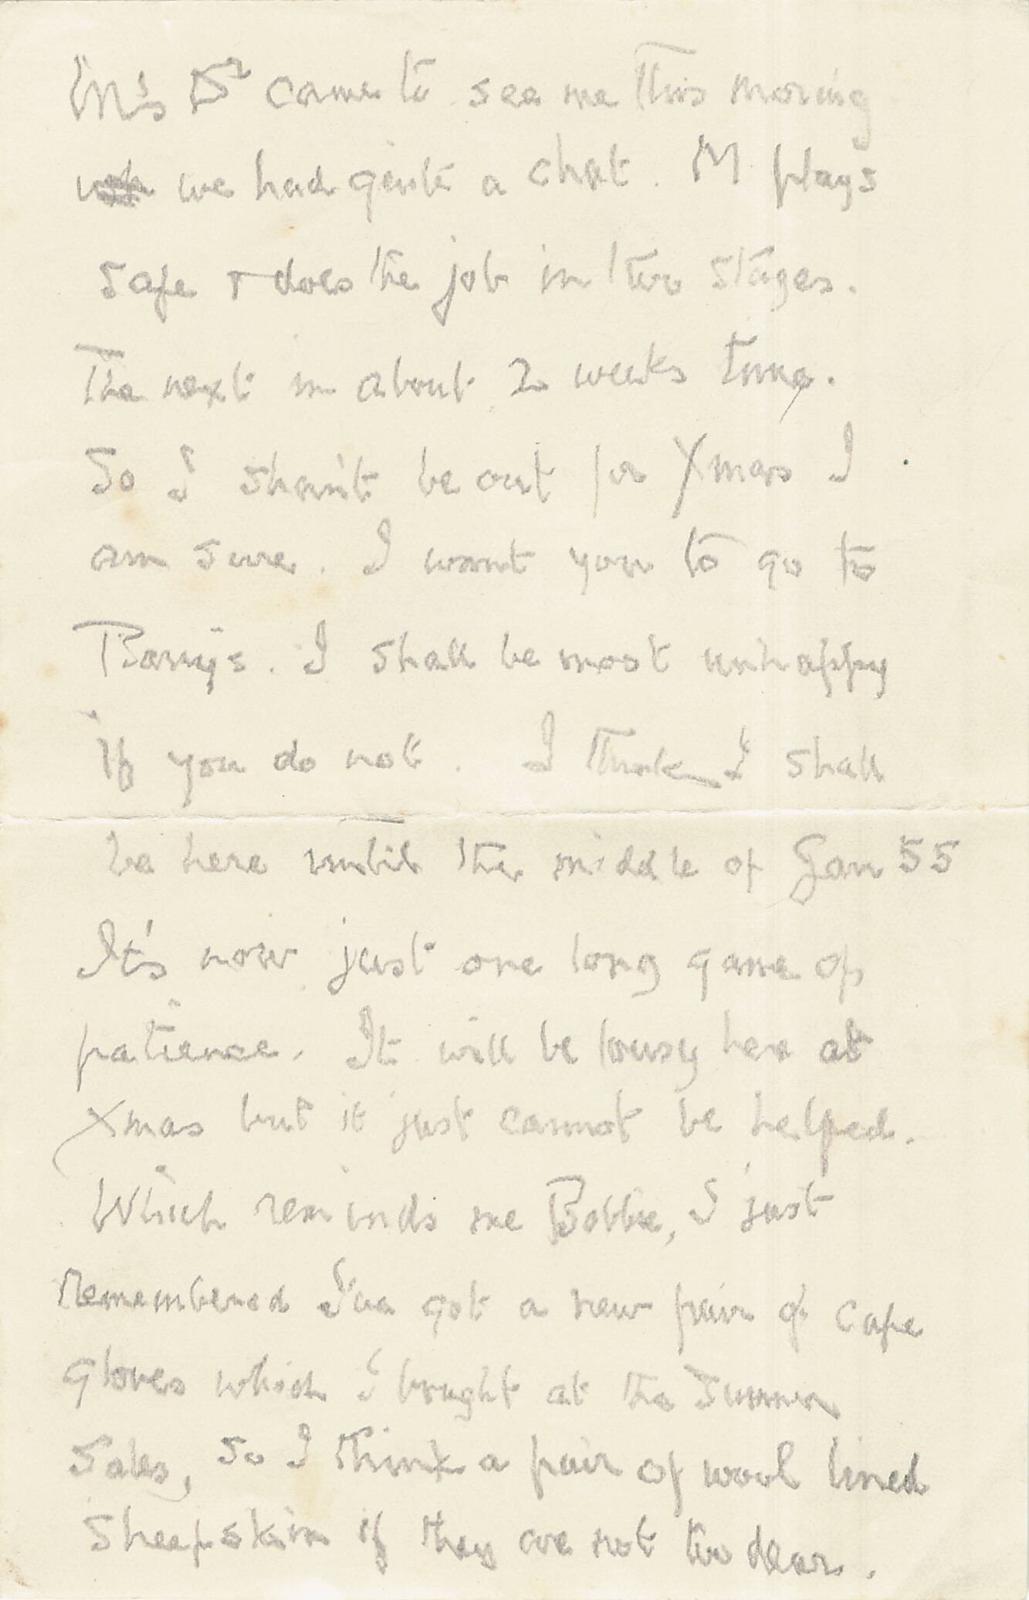 M's Dr came to see me this morning
we had quite a chat. M plays
safe + does the job in two stages.
The next in about 2 weeks time.
So I shan't be out for Xmas I
am sure. I want you to go to
Barry's. I shall be most unhappy
if you do not. I think I shall
be here until the middle of Jan 55
It's now just one long game of
patience. It will be lousy here at
Xmas but it just cannot be helped.
Which reminds me Bobbie, I just
remembered I've got a new pair of cape
gloves which I bought at the Summer
Sales, so I think a pair of wool lined
Sheepskin if they are not too dear.